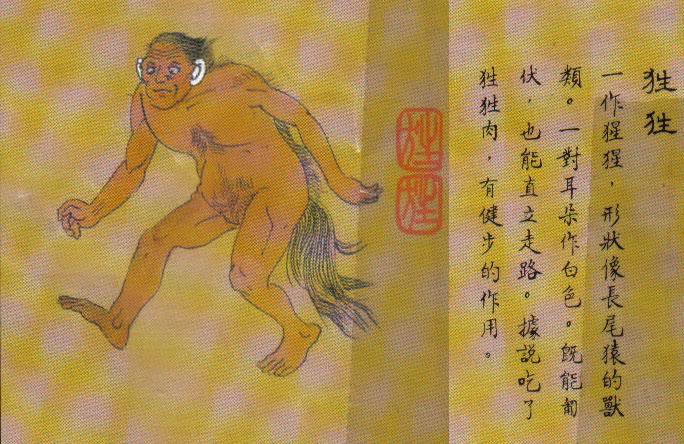 狌狌
一作猩猩，形狀像長尾猿的獸
類。一對耳朵作白色。既能匍
伏，也能直立走路。據説吃了
狌狌肉，有健步的作用。
狌狌